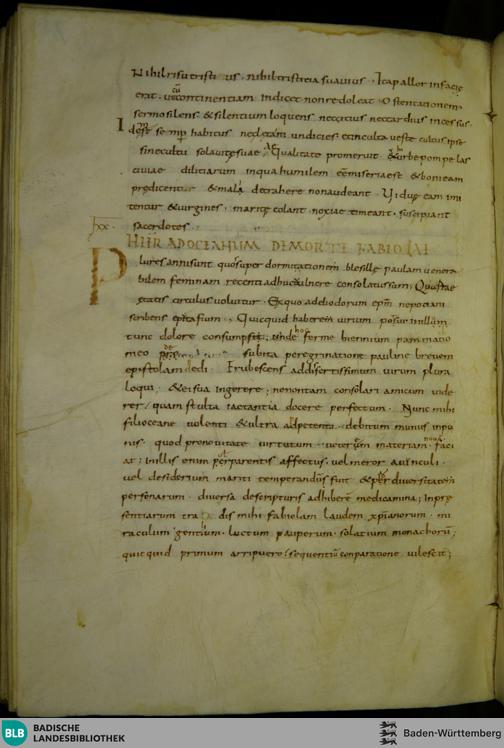 Nihil risu tristi us. nihil tristitia suauius. Ita pallor in facie
erat. ut cū continentiam indicet non redoleat. Ostentationem.
sermo silens. & silentium loquens nec citus nec tardus incessus.
idē semp habitus neglecta mundicies. & inculta ueste cultus ipse
sine cultu sola uitę suae Aequalitate promeruit. & in urbe pompę las
ciuiae diliciarum in qua humilem eē miseria est & boni eam
predicent & mali detrahere non audeant. Uiduę eam imi
tentur & uirgines. maritę colant. noxiae timeant. suscipiant
sacerdotes.
hxx.
HIER AD OCEANUM DE MORTE FABIOLAE
Plures anni sunt quod super dormitationem blesillę paulam uenera
bilem feminam recenti adhuc uulnere consolatus sum; Quartae
ętatis circulus uoluitur. Ex quo ad eliodorum epm nepotiani
scribens epitafium. Quicquid habere in uirum potui in illum
tunc dolore consumpsi; Unde hoc ferme biennium pammatio
meo subita peregrinatione pauline breuem
epistolam dedi. Erubescens ad disertissimum uirum plura
loqui. & ei sua ingerere; ne non tam consolari amicum uide
rer/ quam stulta iactantia docere perfectum. Nunc mihi
fili oceane uolenti & ultra adpetenti. debitum munus inpo
nis. quod pro nouitate uirtutum. ueterem materiam nouā faci
at; In illis enim uel parentis affectus. uel meror auunculi.
uel desiderium mariti temperandus fuit & per diuersitatem
personarum. diuersa de scripturis adhibere medicamina; In pre
sentiarum tra dis mihi fabiolam laudem xpianorum. mi
raculum gentium. luctum pauperum. solatium monachorū;
quicquid primum arripuero/ sequentiū conparatione uilescit;
BLB
BADISCHE
LANDESBIBLIOTHEK
Baden-Württemberg